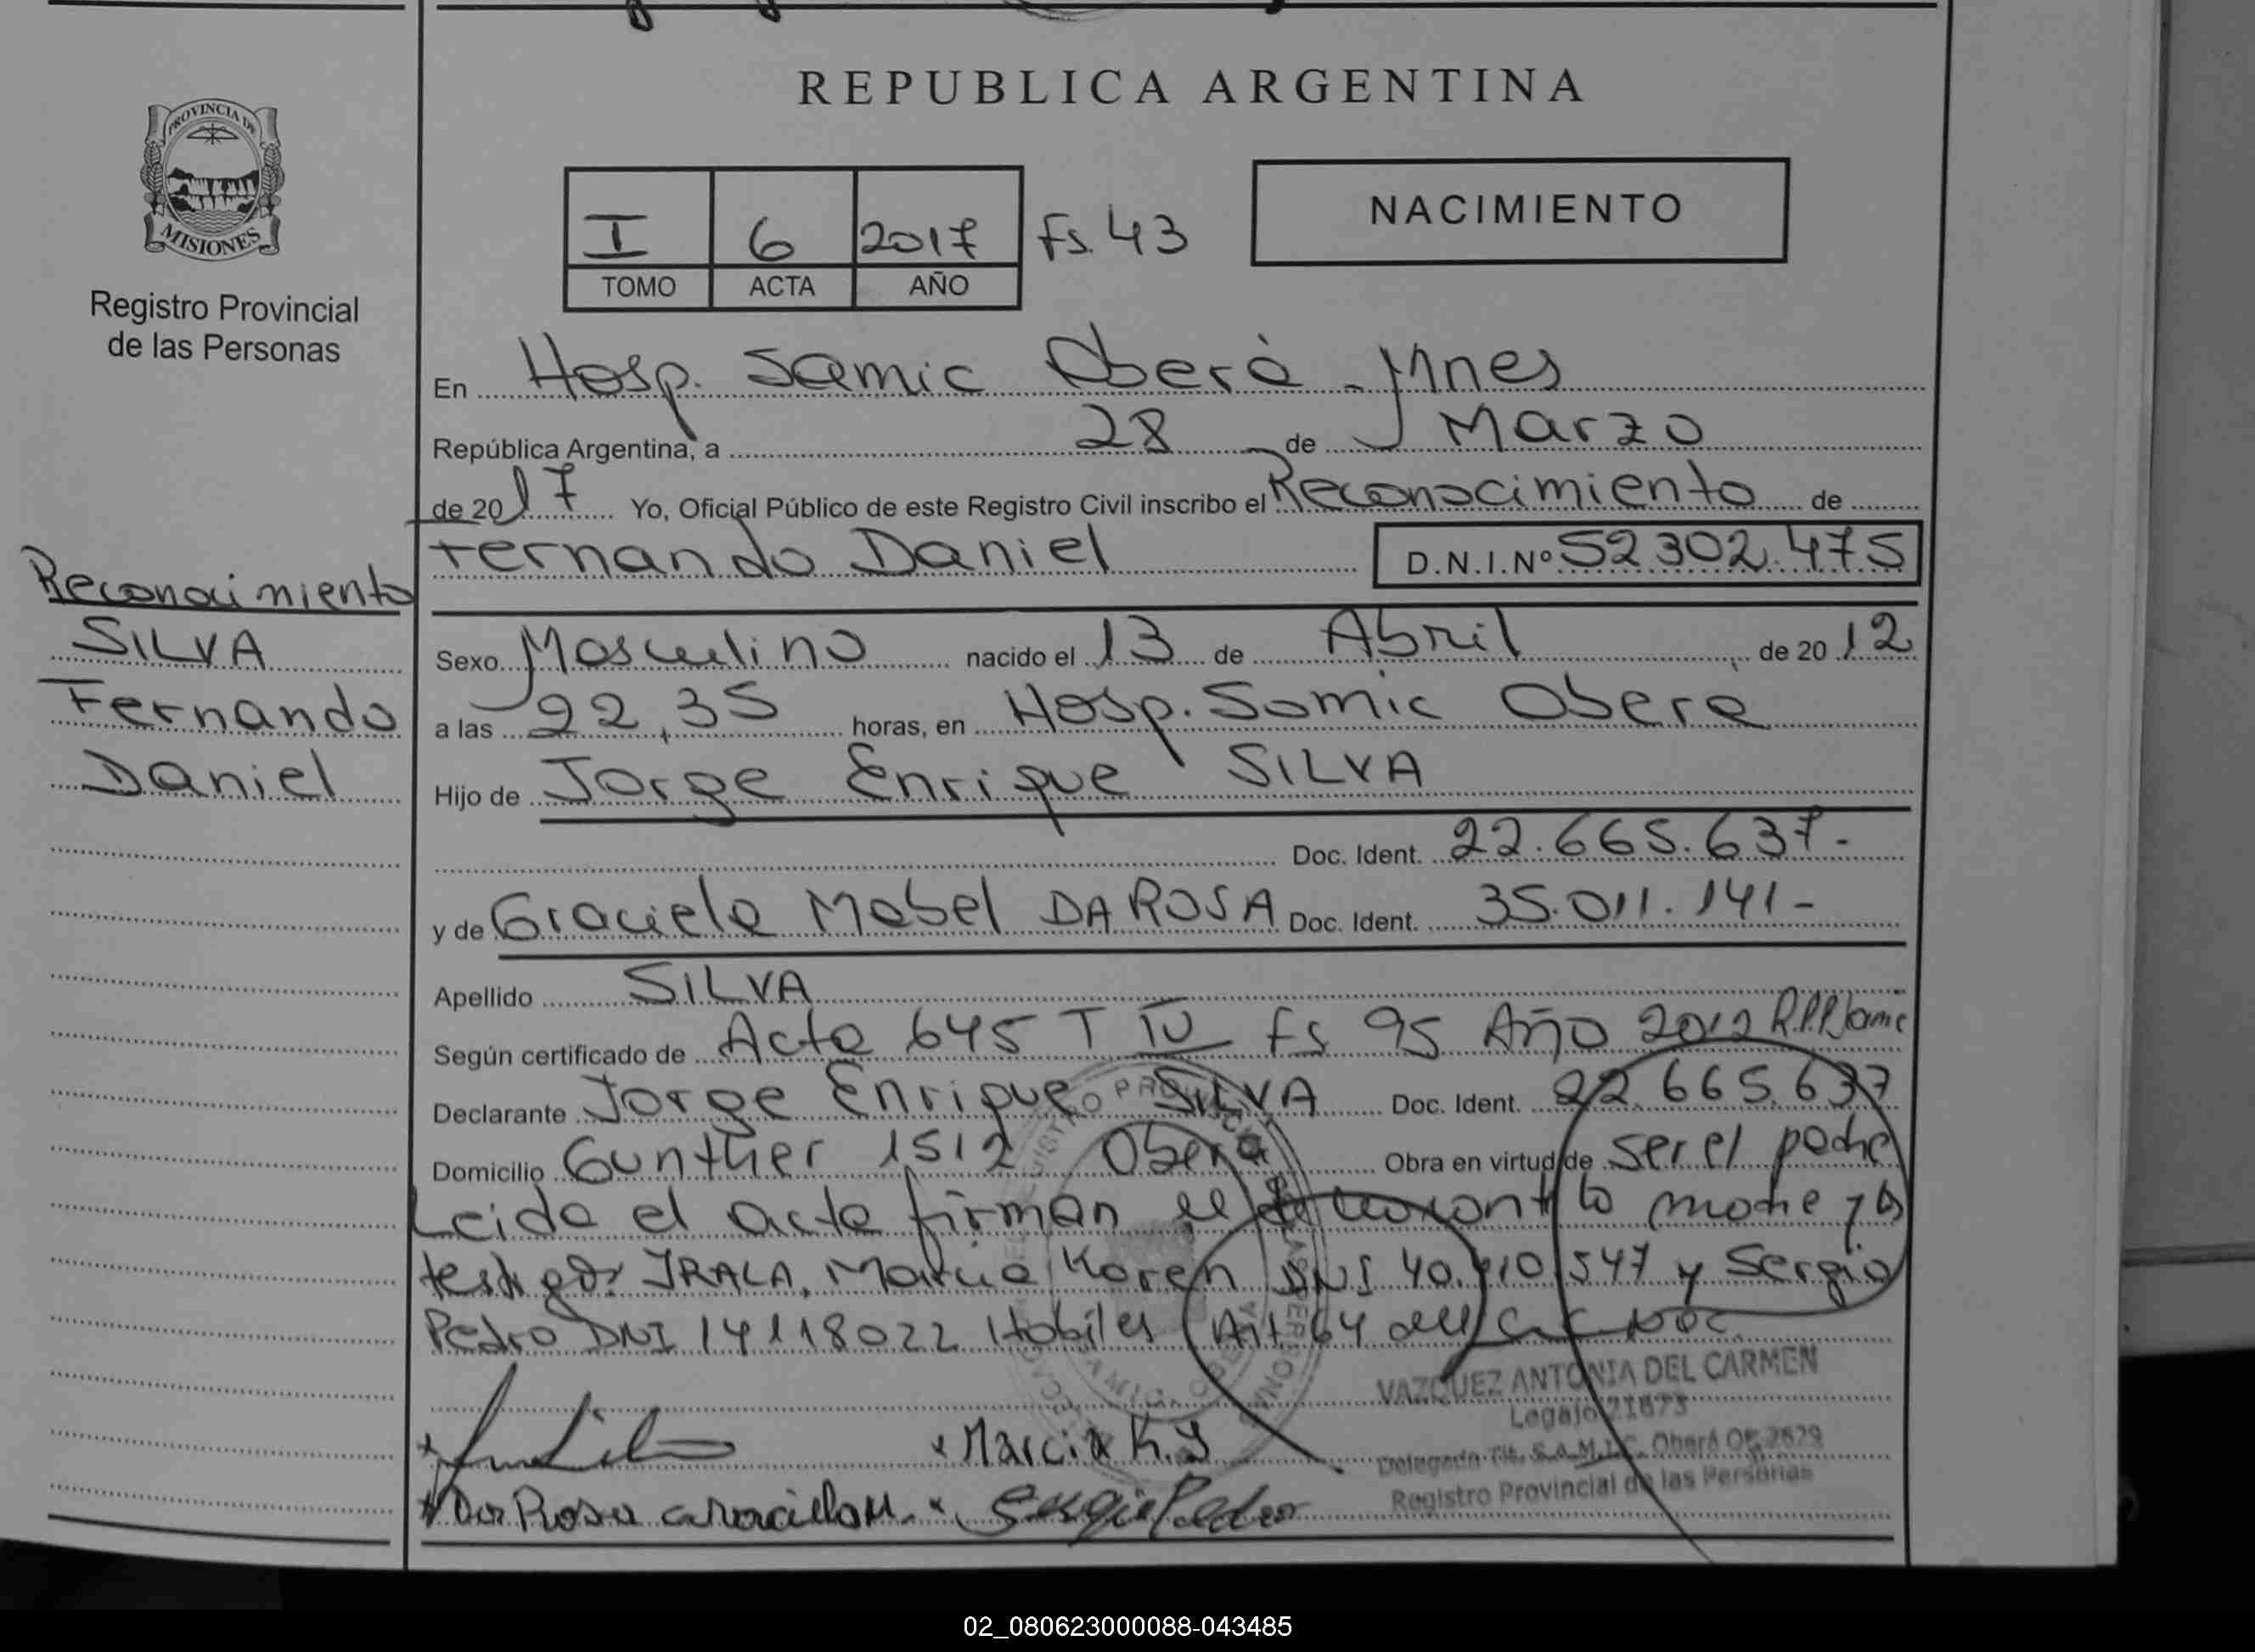 REPUBLICA ARGENTINA
PROVINCIA DE
MISIONES
Registro Provincial
de las Personas
I 6 2017 Fs. 43
TOMO ACTA AÑO
NACIMIENTO
En Hosp. Samic Oberá - Mnes
República Argentina, a 28 de Marzo
de 2017 Yo, Oficial Público de este Registro Civil inscribo el Reconocimiento de
Fernando Daniel D.N.I.Nº 52302.475
Reconocimiento
SILVA
Fernando
Daniel
Sexo Masculino nacido el 13 de Abril de 2012
a las 22,35 horas, en Hosp. Samic Oberá
Hijo de Jorge Enrique SILVA
Doc. Ident. 22.665.637-
y de Graciela Mabel DA ROSA Doc. Ident. 35.011.141-
Apellido SILVA
Según certificado de Acta 645 T IV fs 95 Año 2012 R.P.P Samic
Declarante Jorge Enrique SILVA Doc. Ident. 22.665.637
Domicilio Gunther 1512 Oberá Obra en virtud de ser el padre
Leida el acta firman el la madre y los
testigos IRALA, Marcia Karen DNI 40.410.547 y Sergio
Pedro DNI 14118022 Habiles Art 64 del
VAZQUEZ ANTONIA DEL CARMEN
Legajo 21673
Delegada Tit. S.A.M.I.C. Oberá Of. 2629
Registro Provincial de las Personas
x Marcia K. I
x Da Rosa Graciela M. x Sergio Pedro
02_080623000088-043485